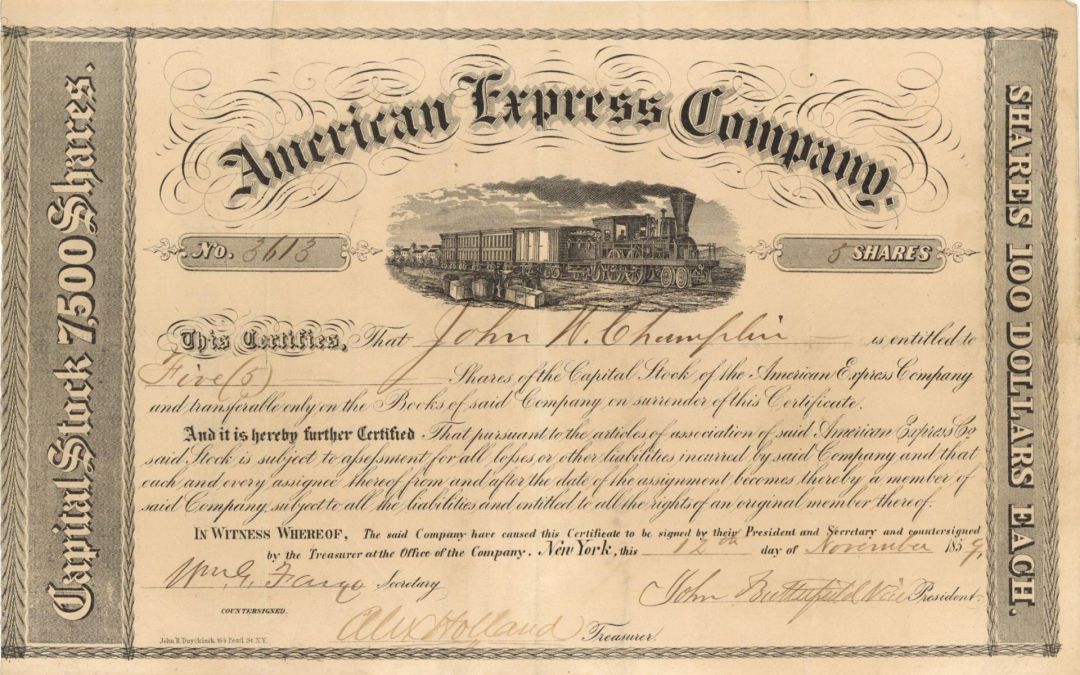 American Express Company.
Capital Stock 7500 Shares.
SHARES 100 DOLLARS EACH.
No. 3613
5 SHARES
This Certifies, That John W. Champlin is entitled to
Five (5) Shares of the Capital Stock of the American Express Company
and transferable only on the Books of said Company on surrender of this Certificate.
And it is hereby further Certified. That pursuant to the articles of association of said American Express Co
said Stock is subject to assessment for all losses or other liabilities incurred by said Company and that
each and every assignee thereof from and after the date of the assignment becomes thereby a member of
said Company, subject to all the liabilities and entitled to all the rights of an original member thereof.
IN WITNESS WHEREOF, The said Company have caused this Certificate to be signed by their President and Secretary and countersigned
by the Treasurer at the Office of the Company. New York, this 12th day of November 1859,
Wm G. Fargo Secretary
John Butterfield Vice President
COUNTERSIGNED.
Alex Holland Treasurer.
John R Duyckinck 164 Pearl St N.Y.